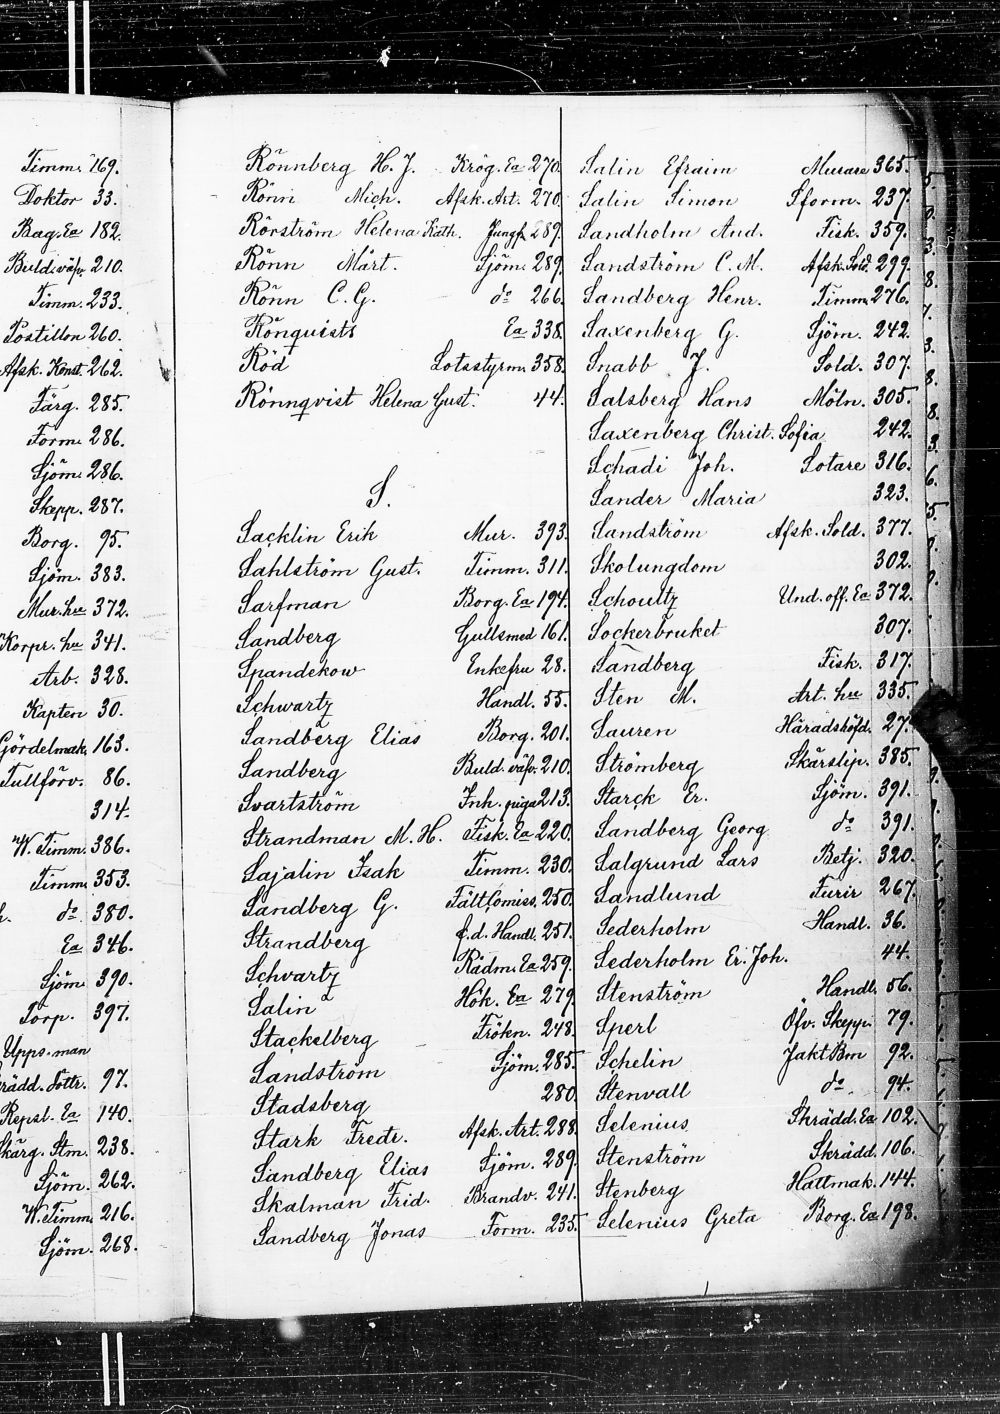 Timm. 169.
Doktor 33.
Bag. Ea 182.
Buld.väfv. 210.
Timm. 233.
Postillon 260.
Afsk. Konst. 262.
Färg. 285.
Form. 286.
Sjöm. 286.
Skepp. 287.
Borg. 95.
Sjöm. 383.
Mur. hu 372.
Korpr. hu 341.
Arb. 328.
Kapten 30.
Gördelmak. 163.
Tullförv. 86.
314.
W. Timm. 386.
Timm. 353.
do 380.
Ea 346.
Sjöm. 390.
Torp. 397.
Upps.man
Skrädd. Dottr. 97.
Repsl. Ea 140.
Skärg. Stm. 238.
Sjöm. 262.
W. Timm. 216.
Sjöm. 268.
Rönnberg H. J. Krög. Ea 270.
Rönn Mich. Afsk. Art. 270.
Rörström Helena Kath. Jungf. 289.
Rönn Mårt. Sjöm. 289.
Rönn C. G. do 266.
Rönquists Ea 338.
Röd Lotsstyrm. 358.
Rönnqvist Helena Gust. 44.
S.
Sacklin Erik Mur. 393.
Sahlström Gust. Timm. 311.
Sarfman Borg. Ea 194.
Sandberg Gullsmed 161.
Spandekow Enkefru 28.
Schwartz Handl. 55.
Sandberg Elias Borg. 201.
Sandberg Buld. väfv. 210.
Svartström Inh. piga 213.
Strandman M. H. Fisk. Ea 220.
Sajalin Isak Timm. 230.
Sandberg G. Fält Comiss. 250.
Strandberg f. d. Handl. 251.
Schvartz Rådm. Ea 259.
Salin Hök. Ea 279.
Stackelberg Frökn. 248.
Sandström Sjöm. 285.
Stadsberg 280.
Stark Fredr. Afsk. Art. 288.
Sandberg Elias Sjöm. 289.
Skalman Frid. Brandv. 241.
Sandberg Jonas Form. 235.
Salin Efraim Murare 365.
Salin Simon Sform. 237.
Sandholm And. Fisk. 359.
Sandström C. M. Afsk. Sold. 299.
Sandberg Henr. Timm. 276.
Saxenberg G. Sjöm. 242.
Snabb J. Sold. 307.
Salsberg Hans Möln. 305.
Saxenberg Christ. Sofia 242.
Schadi Joh. Sotare 316.
Sander Maria 323.
Sandström Afsk. Sold. 377.
Skolungdom 302.
Schoultz Und. off. Ea 372.
Sockerbruket 307.
Sandberg Fisk. 317.
Sten M. Art. hu 335.
Sauren Häradshöfd. 27.
Strömberg Skärslip. 385.
Starck Er. Sjöm. 391.
Sandberg Georg do 391.
Salgrund Lars Betj. 320.
Sandlund Furir 267.
Sederholm Handl. 36.
Sederholm Er. Joh. 44.
Stenström Handl. 56.
Sperl Öfv. Skepp. 79.
Schelin Jakt Bm 92.
Stenvall do 94.
Selenius Skrädd. Ea 102.
Stenström Skrädd. 106.
Stenberg Hattmak. 144.
Selenius Greta Borg. Ea 198.